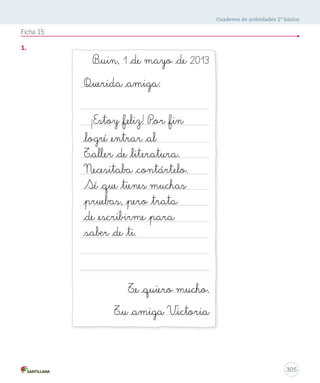 Cuaderno de actividades 2° básico
Ficha 15
1.
Buin, 1 de mayo de 2013
Querida amiga:
¡Estoy feliz! Por fin
logré entrar al
Taller de literatura.
Necesitaba contártelo.
Sé que tienes muchas
pruebas, pero trata
de escribirme para
saber de ti.
Te quiero mucho.
Tu amiga Victoria
SANTILLANA
305